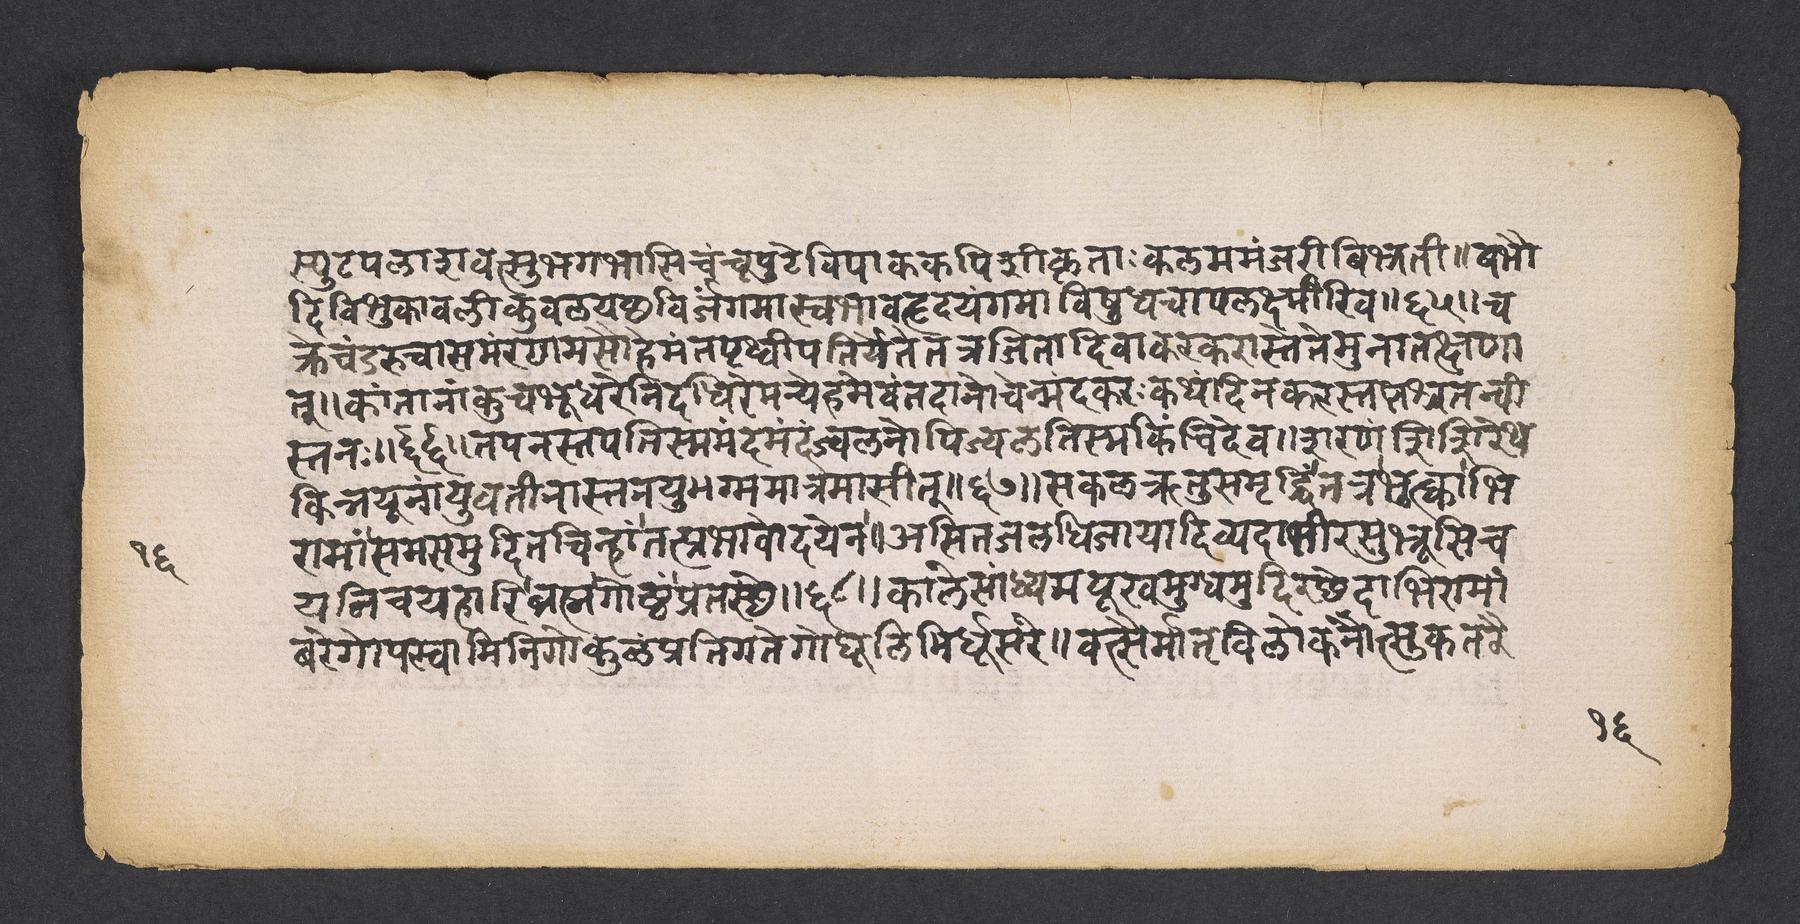 स्फुटपलाशवेत्सुभगभासिचंचूपुटेविपाककपिशीकृताःकलममंजरीबिभ्रती॥बभौ
दिविशुकावलीकुवलयछविर्जंगमास्वभावहृदयंगमाविबुधचापलक्ष्मीरिव॥६५॥च
क्रेचंडरुचासमंरणमसौहेमंतपृथ्वीपतिर्येतेतत्रजितादिवाकरकरास्तेतेमुनातत्क्षणा
त्॥कांतानांकुचभूधरेनिदधिरेमन्येहमेवंतदानोचेन्मंदकरःकथंदिनकरस्तप्तश्चतन्वी
स्तनः॥६६॥तपनस्तपतिस्ममंदमंदंज्वलनोपिज्वलतिस्मकिंचिदेव॥शरणंशिशिरेथ
किन्नयूनांयुवतीनांस्तनयुग्ममात्रमासीत्॥६७॥सकलऋतुसमृद्धिंतत्रभूत्काभि
रामांसमसमुदितचिन्हांतत्प्रभावोदयेन॥असितजलधिजायादिव्यदाभीरसुभ्रूसिच
यनिचयहारिप्रत्नगोष्ठंप्रतस्थे॥६८॥कालेसांध्यमयूखमुग्धमुदिरछेदाभिरामां
बरेगोपस्वामिनिगोकुलंप्रतिगतेगोधूलिभिर्धूसरे॥वत्सैर्मातृविलोकनोत्सुकतरै
१६
१६